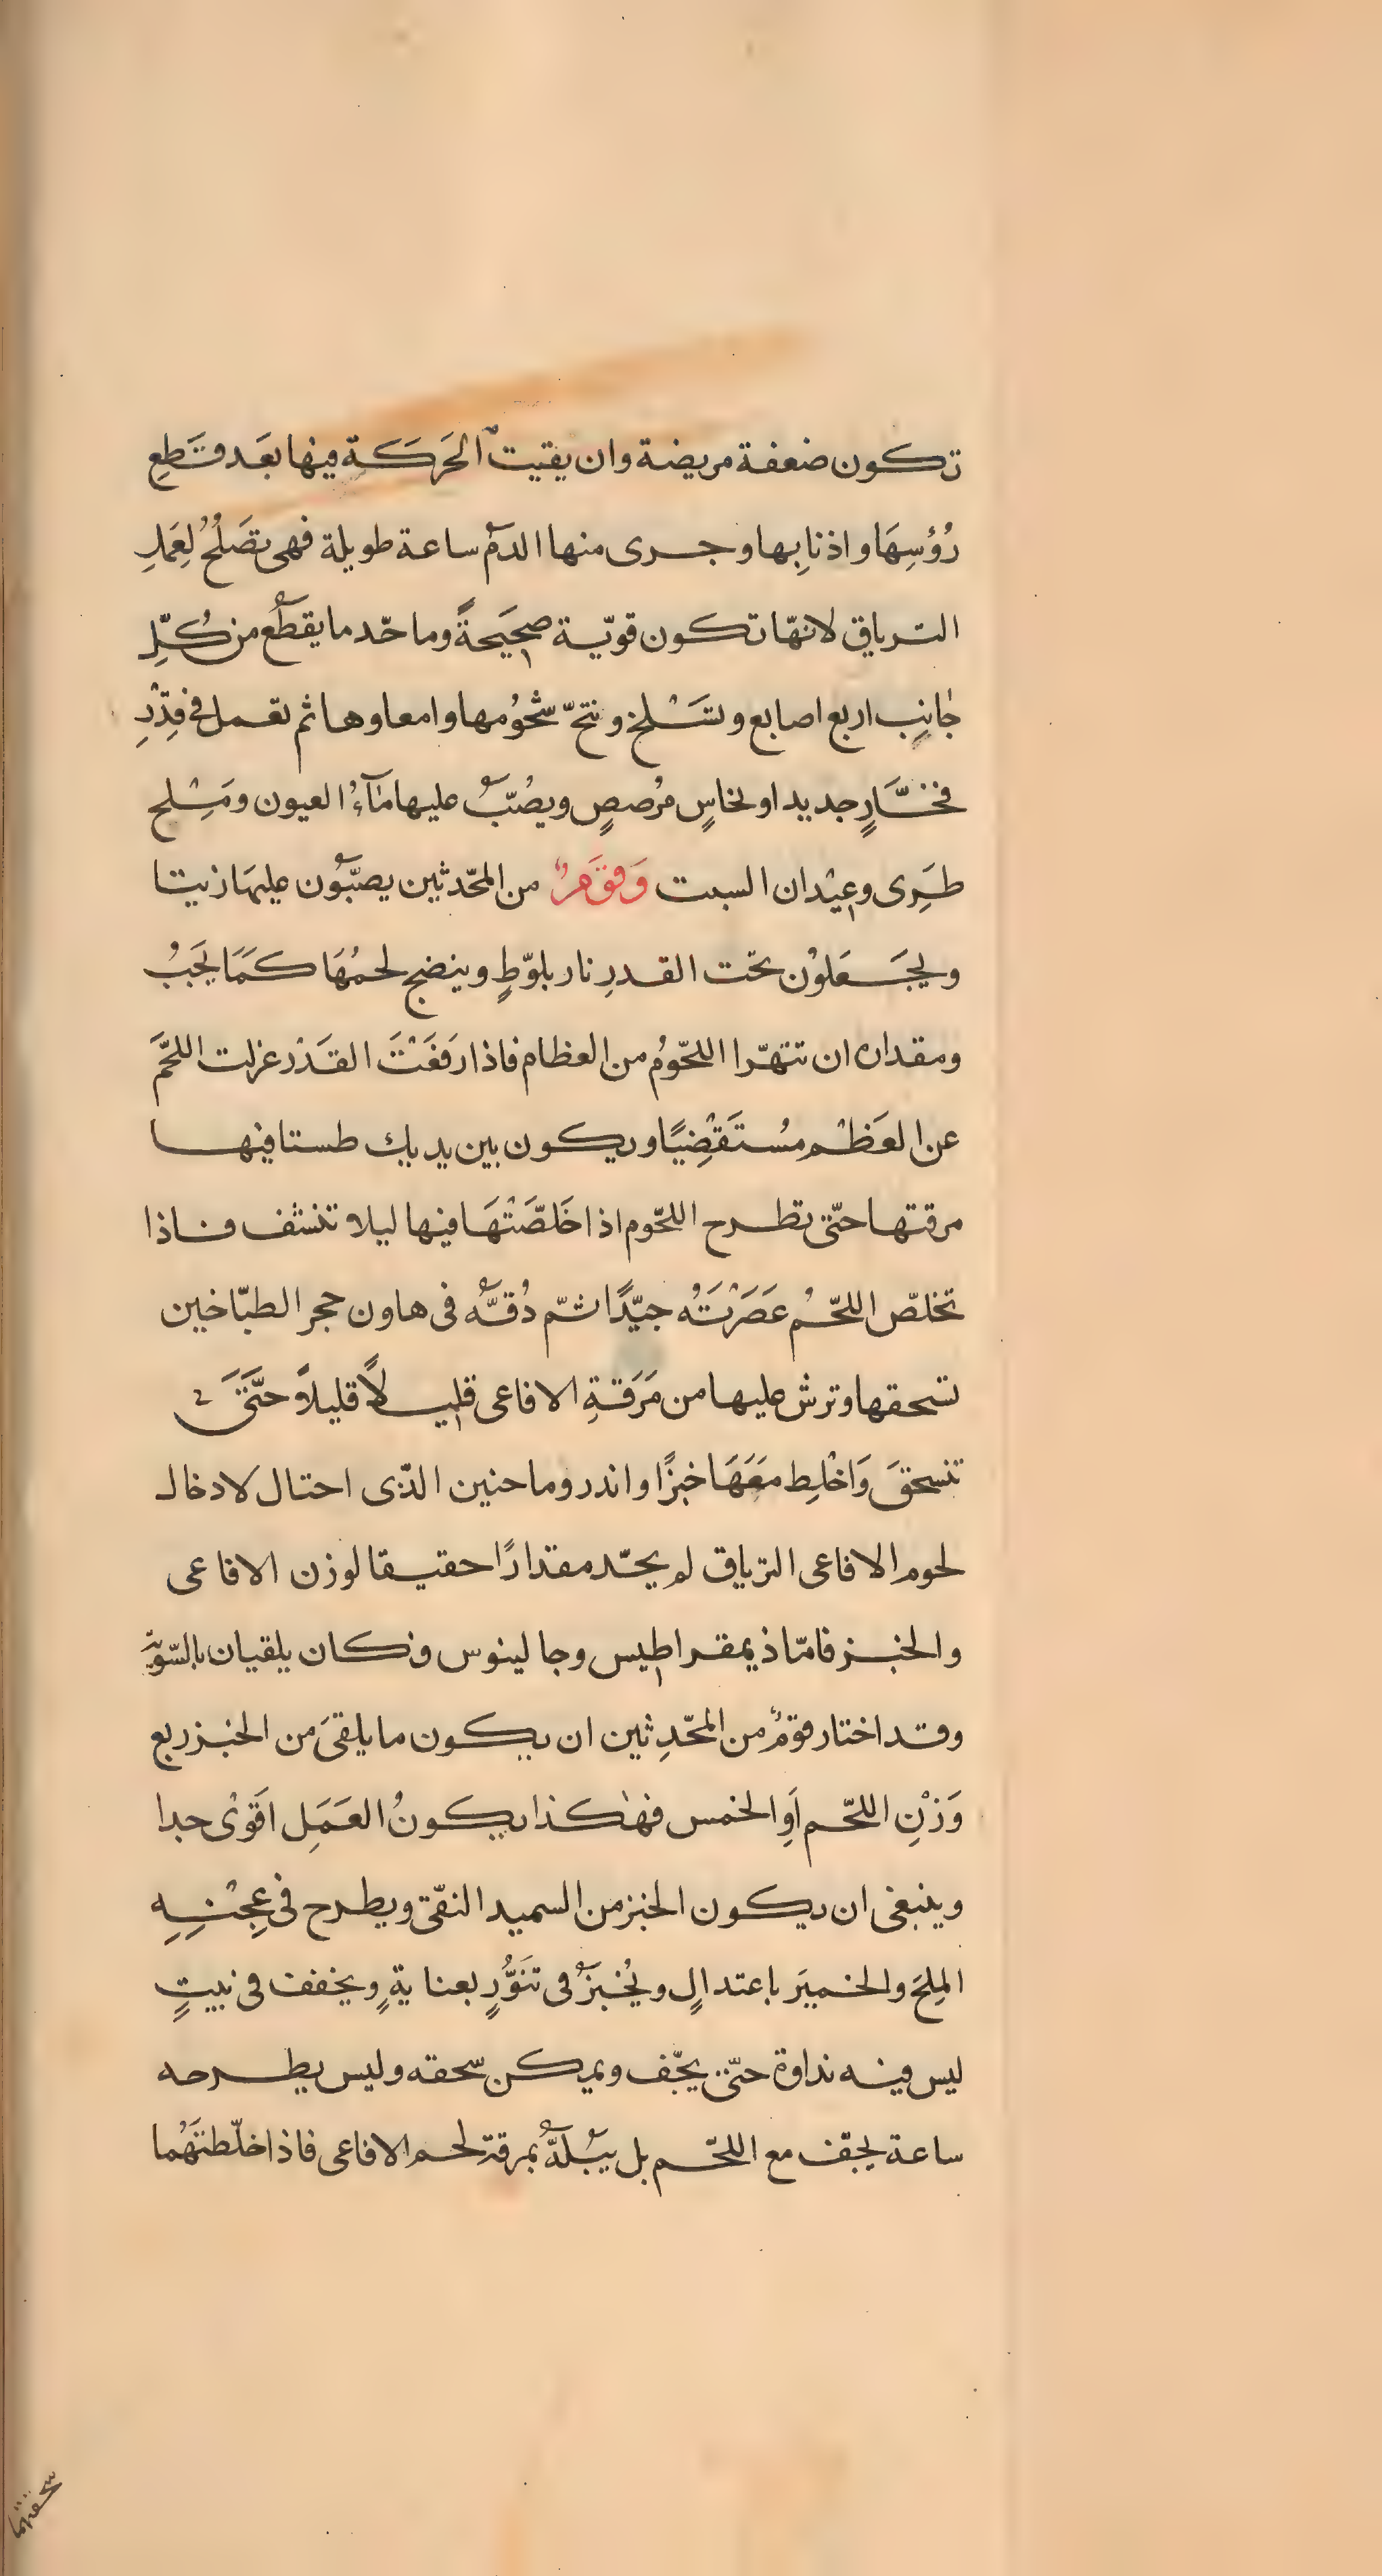 تكون ضعفة مريضة وان يقيت الحَرَكَة فيها بعَد قَطعِ
رُؤسِهَا واذنابِها وجرى منها الدمّ ساعة طويلة فهى تصَلُحُ لِعَملِ
الترياق لانهّا تكون قويّة صحِيَحةً وما حّد ما يقطَّع من كُلِّ
جٰانِب اربع اصابع وتسَلخ وننحّ شحُومها وامعاوها ثم تعمل فى قِدْرِ
فخَّارٍ جديد او نحاسٍ مرُصصٍ ويصُبّ عليها مٰآءُ العيون ومَلِح
طَرِى وعِيْدان السبت وَقوَمٌ من المحّدثين يصبّون عليهَا زيتا
ويجَعَلوْن تحّت القدرِ نار بلوّطٍ وينضج لحمُهَا كَمَا يَجَبُ
ومقداره ان تتهرّا اللحّومُ من العظام فاذا رَفَعَْتَ القَدْر عزلت اللحَّمَ
عن العَظْم مسُتَقْضِيًا ويكون بين يديك طستا فيها
مرقتها حتّى تطرح اللحّوم اذا خَلصَّتْهَا فيها ليلا تنشف فاذا
تخلصّ اللحّمُ عَصَرْتَهُ جيّدًا ثمّ دُقّه فى هاون حجر الطبّاخين
تسحقها وترش عليها من مَرَقةِ الافاعى قليلًا قليلاً حتَّىَ
تنسحقَ وَاخْلِط معَهَا خبزًا واندروماحنين الذّى احتال لادخال
لحوم الافاعى الترياق لم يحّد مقدارًا حقيقا لوزن الافاعى
والخبز فامّا ذيمقراطيس وجالينوس فكان يلقيان بالسّويّة
وقد اختار قومٌ من المحّدِثين ان يكون ما يلقىَ من الخبز ربع
وَزْنِ اللحّم اَوِ الخمس فهٰكذا يكونُ العَمَلِ اَقَوْى جدا
وينبغى ان يكون الخبز من السميد النقّى ويطرح فى عِجْنِهِ
المِلحَ والخميَر باِعتدالٍ ويُخبزَ فى تنَوُّرٍ بعنايةٍ ويخفف فى بَيتٍ
ليس فيه نداوة حتّى يجّف ويمكن سحقه وليس يطرحه
ساعة يجفف مع اللحّم بل يبُلّه بمرقة لحم الافاعى فاذا خلّطتهَُما
سحقتهما